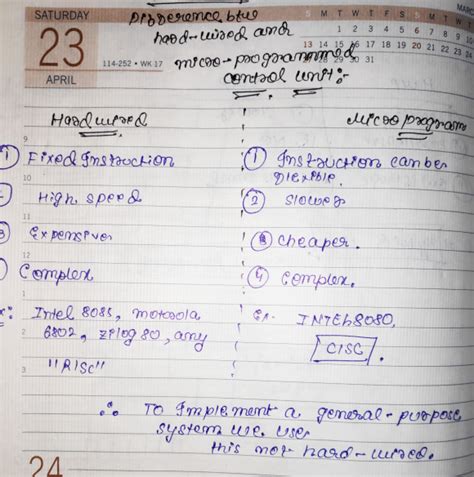 SATURDAY
23
APRIL
114-252 • WK 17
S M T W T F S M T W
1 2 3 4 5 6 7 8 9 10
13 14 15 16 17 18 19 20 21 22 23 24
28 29 30 31
Difference btw
hard-wired and
micro-programmed
control unit:-
Hardwired
Micro program
9
① Fixed Instruction
① Instruction can be
flexible.
10
High speed
② slower
11
Expensive
③ cheaper.
12
Complex
④ complex.
1
Ex: Intel 8085, motorola
Ex. INTEL8080,
2
6802, zilog 80, any
CISC.
3
"RISC"
∴ To Implement a general-purpose
system we use
this not hard-wired.
24